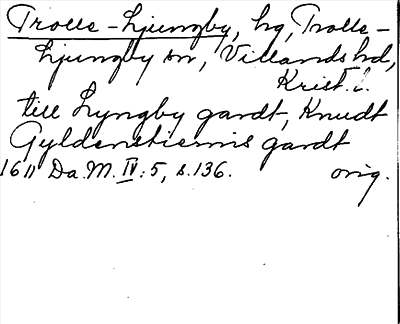 Trolle-Ljungby, hg, Trolle-
Ljungby sn, Villands hd,
Krist. l.
till Lyngby gardt, Knudt
Gyldenstierns gardt
1611 Da. M. IV: 5, s. 136. orig.